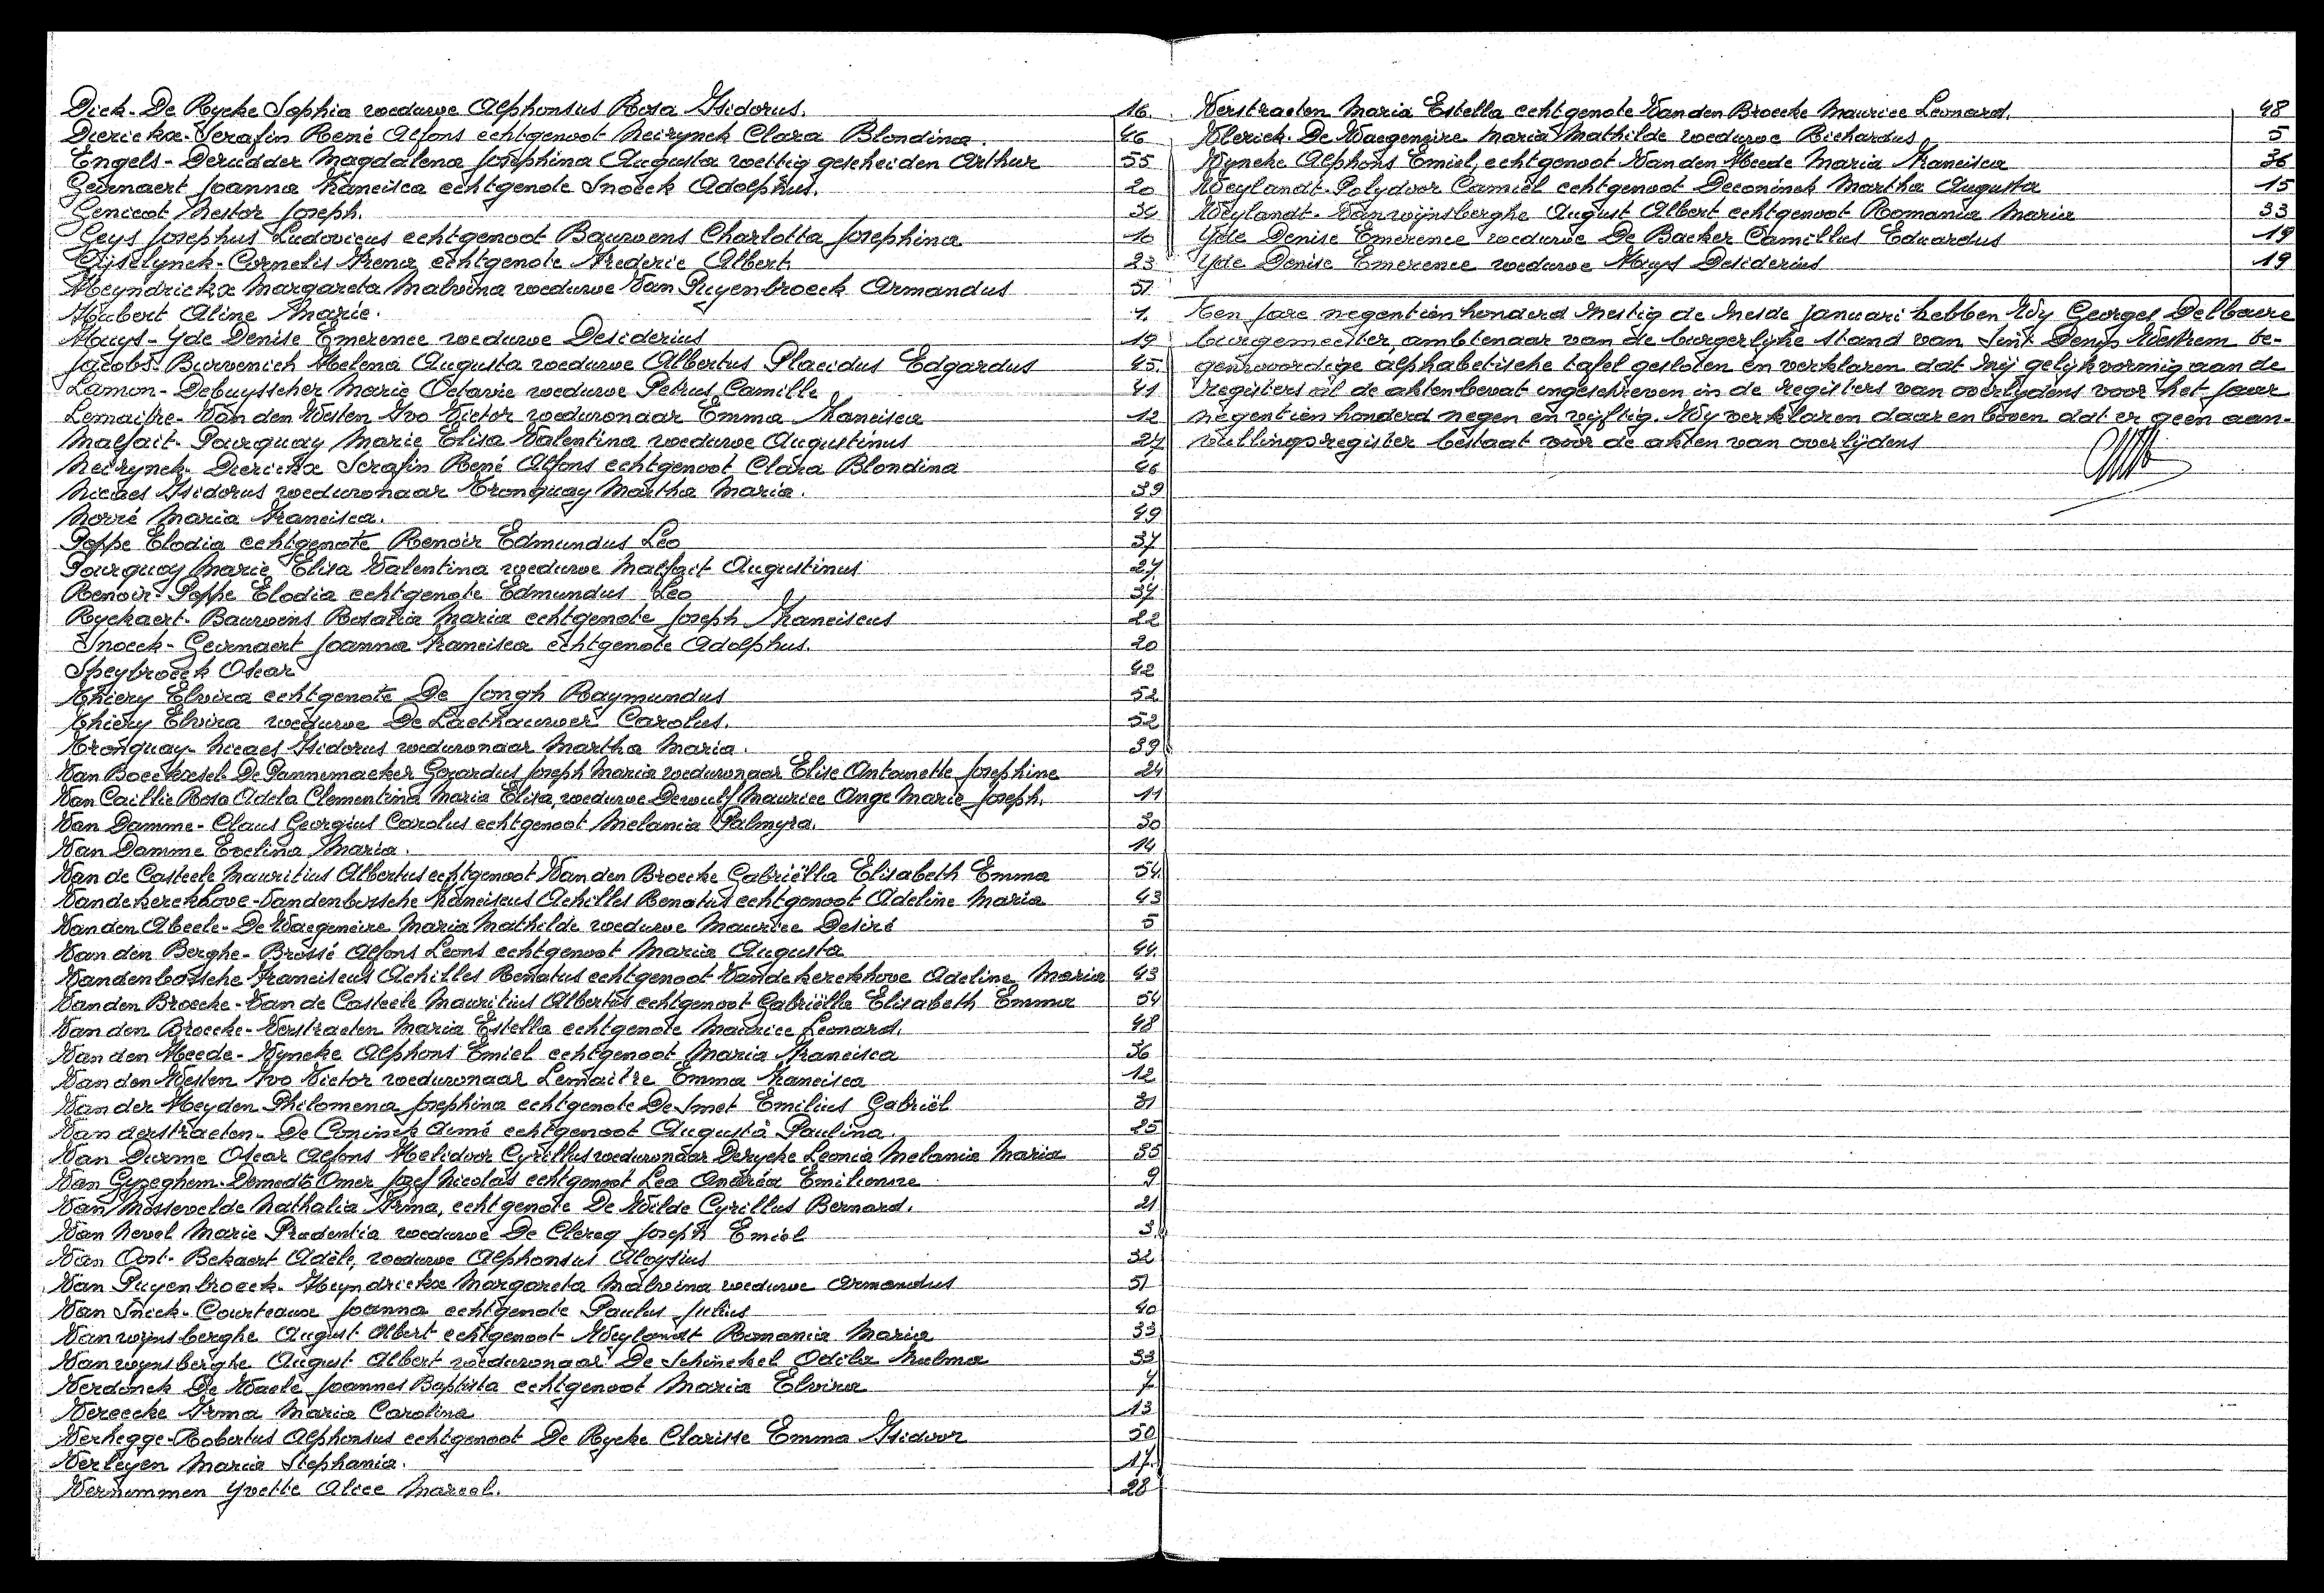 Dick-De Rycke Sophia weduwe Alphonsus Rosa Isidorus. 16.
Dierickx-Serafin René Alfons echtgenoot Neirynck Clara Blondina. 46
Engels-Deridder Magdalena Josephina Augusta wettig gescheiden Arthur 55
Geirnaert Joanna Francisca echtgenote Snoeck Adolphus. 20
Genicot Nestor Joseph.
Geys Josephus Ludovicus echtgenoot Bauwens Charlotta Josephina 10
Gijselynck-Cornelis Irena echtgenote Frederic Albert 23
Heyndrickx Margareta Malvina weduwe Van Puyenbroeck Armandus 51
Hubert Aline Marie. 1.
Huys-Yde Denise Emerence weduwe Desiderius 19
Jacobs-Burvenich Helena Augusta weduwe Albertus Placidus Edgardus 45.
Lamon-Debuysscher Marie Octavie weduwe Petrus Camille 41
Lemaitre-Van den Westen Ivo Victor weduwnaar Emma Francisca 12
Malfait-Pourquay Marie Elisa Valentina weduwe Augustinus 27
Neirynck-Dierickx Serafin René Alfons echtgenoot Clara Blondina 46
Nicaes Isidorus weduwnaar Tronquay Martha Maria. 39
Norré Maria Francisca. 49
Poppe Elodia echtgenote Renoir Edmundus Leo 37
Pourquoy Marie Elisa Valentina weduwe Malfait Augustinus 27
Renoir-Poppe Elodia echtgenote Edmundus Leo 37
Ryckaert-Bauwens Rosalia Maria echtgenote Joseph Franciscus 22
Snoeck-Geirnaert Joanna Francisca echtgenote Adolphus. 20
Speybroeck Oscar 42
Thiery Elvira echtgenote De Jongh Raymundus 52
Thiery Elvira weduwe De Laethauwer Carolus. 52
Tronquay-Nicaes Isidorus weduwnaar Martha Maria. 39
Van Boeckxsel-De Pannemaeker Gerardus Joseph Maria weduwnaar Elise Antoinette Josephine 24
Van Caillie Rosa Adela Clementina Maria Elisa, weduwe Dewulf Maurice Ange Marie Joseph. 11
Van Damme-Claus Georgius Carolus echtgenoot Melania Palmyra. 30
Van Damme Evelina Maria. 14
Van de Casteele Mauritius Albertus echtgenoot Van den Broecke Gabriëlla Elisabeth Emma 54.
Vandekerckhove-Vandenbossche Franciscus Achilles Renatus echtgenoot Adeline Maria 43
Van den Abeele-De Waegeneire Maria Mathilde weduwe Maurice Desiré 5
Van den Berghe-Brossé Alfons Leons echtgenoot Maria Augusta 44.
Vandenbossche Franciscus Achilles Renatus echtgenoot Vandekerckhove Adeline Maria 43
Van den Broecke-Van de Casteele Mauritius Albertus echtgenoot Gabriëlla Elisabeth Emma 54
Van den Broecke-Verstraeten Maria Estella echtgenote Maurice Leonard. 48
Van den Heede-Vyncke Alphons Emiel echtgenoot Maria Francisca 36
Van den Westen Ivo Victor weduwnaar Lemaitre Emma Francisca 12
Van der Heyden Philomena Josephina echtgenote De Smet Emilius Gabriël 31
Van derstraeten-De Coninck Aimé echtgenoot Augusta Paulina. 25
Van Durme Oscar Alfons Helidoor Cyrillus weduwnaar Derycke Leonia Melania Maria 35
Van Gyzeghem-Demedts Omer Jozef Nicolas echtgenoot Lea Andréa Emilienne 9
Van Mossevelde Nathalia Irma, echtgenote De Wilde Cyrillus Bernard. 21
Van Nevel Marie Prudentia weduwe De Clercq Joseph Emiel 3
Van Oost-Bekaert Adèle, weduwe Alphonsus Aloysius 32
Van Puyenbroeck-Heyndrickx Margareta Malvina weduwe Armandus 51
Van Sneck-Courteaux Joanna echtgenote Paulus Julius 40
Vanwynsberghe August Albert echtgenoot Weylandt Romania Maria 33
Vanwynsberghe August Albert weduwnaar De Schinckel Odila Hulma 33
Verdonck De Waele Joannes Baptista echtgenoot Maria Elvira 7
Vereecke Irma Maria Carolina 13
Verhegge-Robertus Alphonsus echtgenoot De Rycke Clarisse Emma Isidoor 50
Verleyen Maria Stephania. 17.
Vernimmen Yvette Alice Marcel. 28
Verstraeten Maria Estella echtgenote Van den Broecke Maurice Leonard. 48
Vlerick-De Waegeneire Maria Mathilde weduwe Richardus 5
Vyncke Alphons Emiel, echtgenoot Van den Heede Maria Francisca 36
Weylandt-Polydoor Camiel echtgenoot Deconinck Martha Augusta 15
Weylandt-Vanwijnsberghe August Albert echtgenoot Romania Maria 33
Yde Denise Emerence weduwe De Backer Camillus Eduardus 19
Yde Denise Emerence weduwe Huys Desiderius 19
Ten jare negentienhonderd zestig de zesde januari hebben Wy Georges Delbaere
burgemeester, ambtenaar van de burgerlijke stand van Sint Denijs Westrem te-
genwoordige alphabetische tafel gesloten en verklaren dat zij gelijkvormig aan de
registers al de akten bevat ingeschreven in de registers van overlijdens voor het jaar
negentienhonderd negen en vijftig. Wy verklaren daarenboven dat er geen aan-
vullingsregister bestaat voor de akten van overlijdens